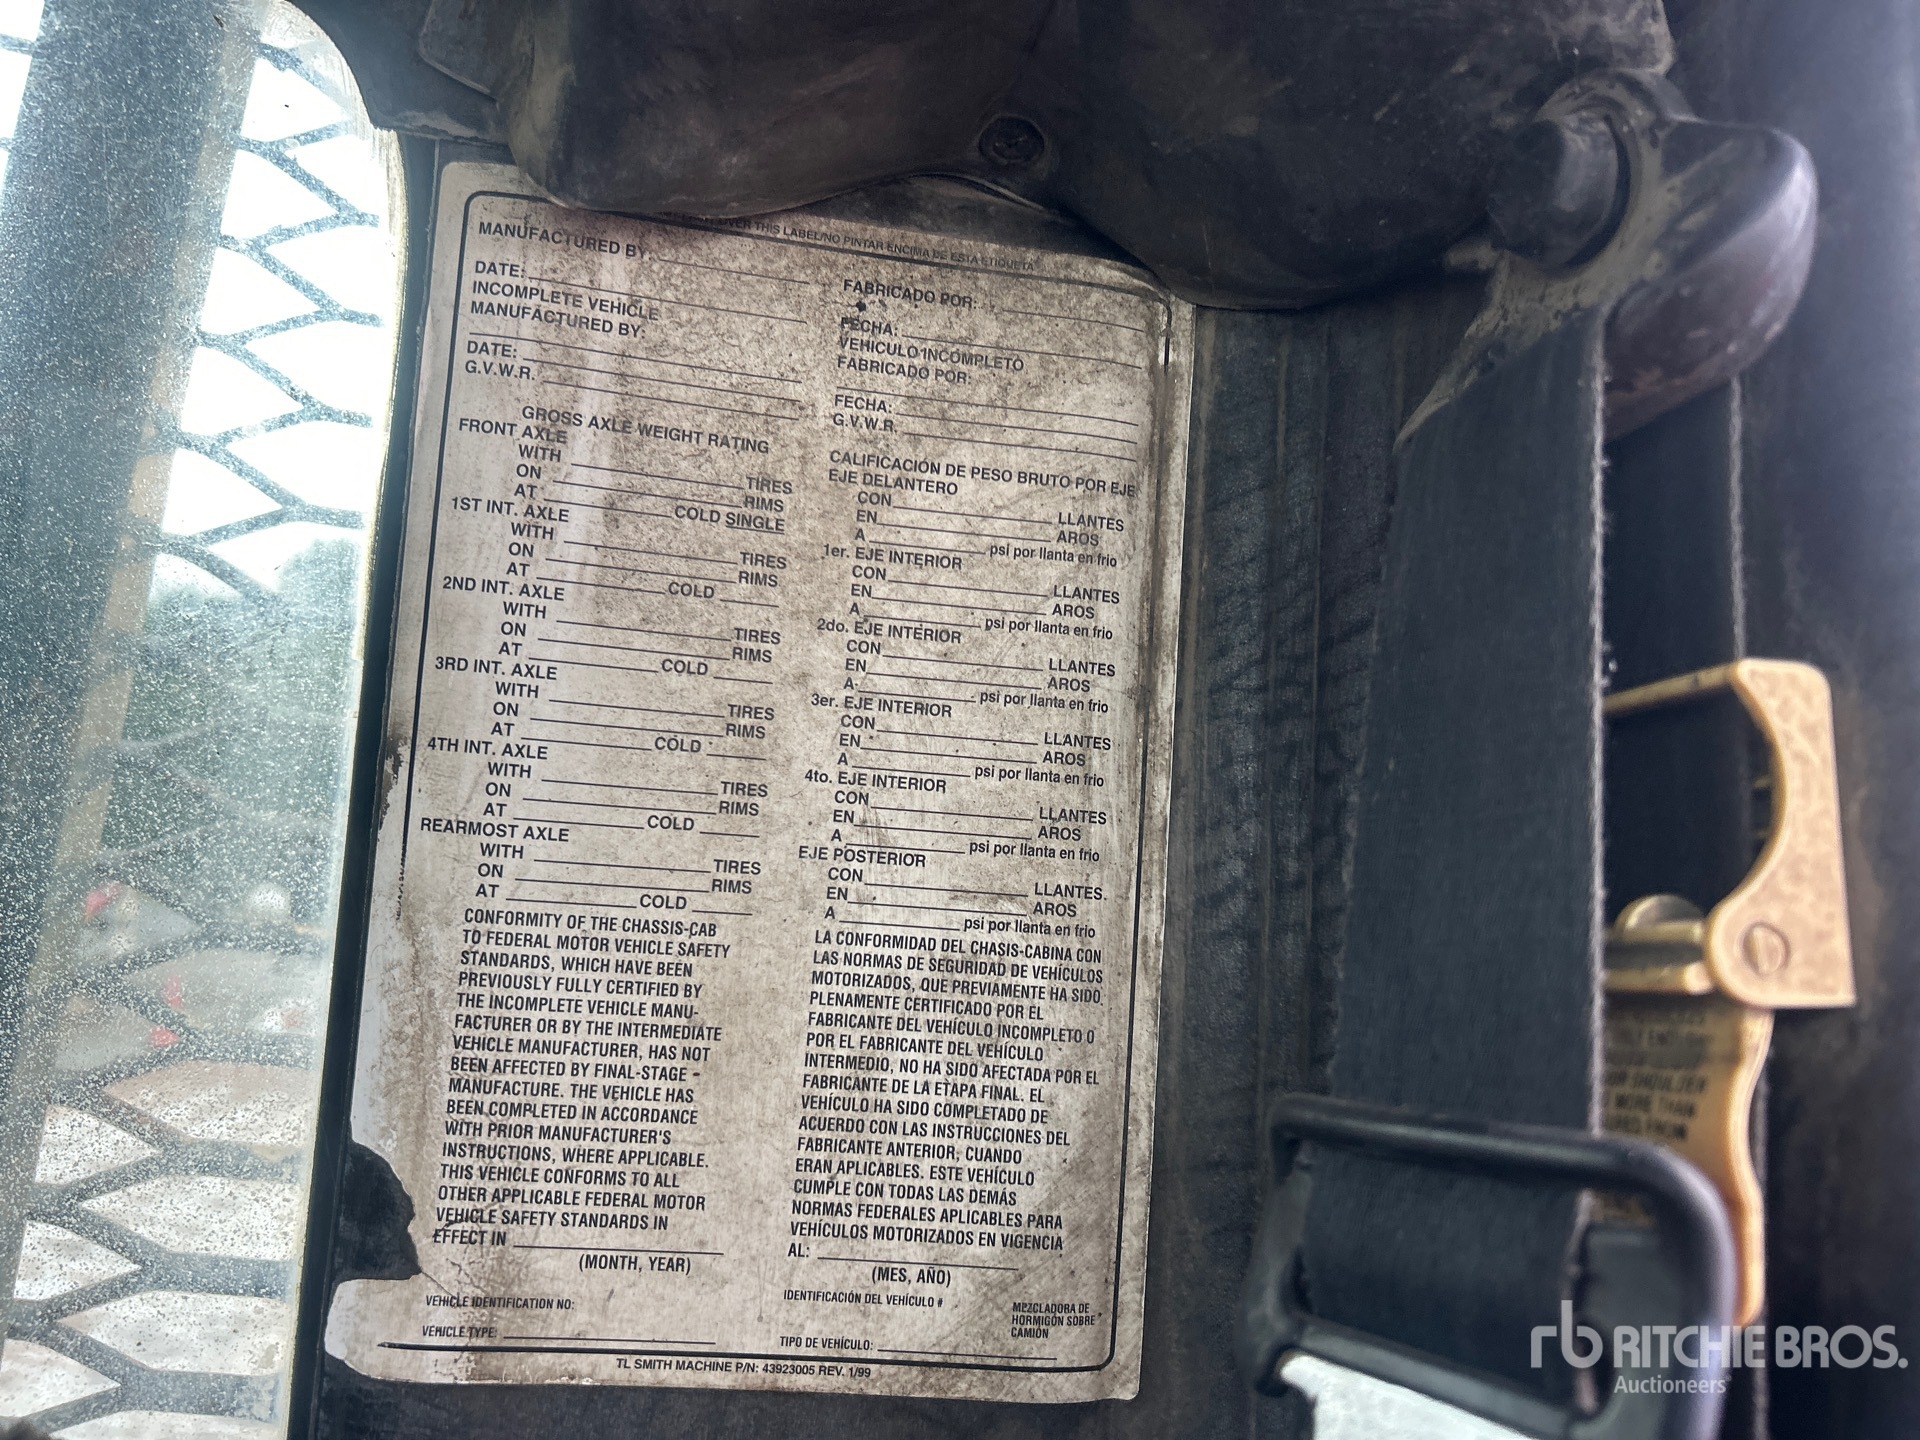 OVER THIS LABEL/NO PINTAR ENCIMA DE ESTA ETIQUETA
MANUFACTURED BY:
DATE:
INCOMPLETE VEHICLE
MANUFACTURED BY:
DATE:
G.V.W.R.
GROSS AXLE WEIGHT RATING
FRONT AXLE
WITH TIRES
ON RIMS
AT COLD SINGLE
1ST INT. AXLE
WITH TIRES
ON RIMS
AT COLD
2ND INT. AXLE
WITH TIRES
ON RIMS
AT COLD
3RD INT. AXLE
WITH TIRES
ON RIMS
AT COLD
4TH INT. AXLE
WITH TIRES
ON RIMS
AT COLD
REARMOST AXLE
WITH TIRES
ON RIMS
AT COLD
CONFORMITY OF THE CHASSIS-CAB
TO FEDERAL MOTOR VEHICLE SAFETY
STANDARDS, WHICH HAVE BEEN
PREVIOUSLY FULLY CERTIFIED BY
THE INCOMPLETE VEHICLE MANU-
FACTURER OR BY THE INTERMEDIATE
VEHICLE MANUFACTURER, HAS NOT
BEEN AFFECTED BY FINAL-STAGE -
MANUFACTURE. THE VEHICLE HAS
BEEN COMPLETED IN ACCORDANCE
WITH PRIOR MANUFACTURER'S
INSTRUCTIONS, WHERE APPLICABLE.
THIS VEHICLE CONFORMS TO ALL
OTHER APPLICABLE FEDERAL MOTOR
VEHICLE SAFETY STANDARDS IN
EFFECT IN
(MONTH, YEAR)
VEHICLE IDENTIFICATION NO:
VEHICLE TYPE:
FABRICADO POR:
FECHA:
VEHICULO INCOMPLETO
FABRICADO POR:
FECHA:
G.V.W.R.
CALIFICACIÓN DE PESO BRUTO POR EJE
EJE DELANTERO
CON LLANTES
EN AROS
A psi por llanta en frio
1er. EJE INTERIOR
CON LLANTES
EN AROS
A psi por llanta en frio
2do. EJE INTERIOR
CON LLANTES
EN AROS
A psi por llanta en frio
3er. EJE INTERIOR
CON LLANTES
EN AROS
A psi por llanta en frio
4to. EJE INTERIOR
CON LLANTES
EN AROS
A psi por llanta en frio
EJE POSTERIOR
CON LLANTES
EN AROS
A psi por llanta en frio
LA CONFORMIDAD DEL CHASIS-CABINA CON
LAS NORMAS DE SEGURIDAD DE VEHÍCULOS
MOTORIZADOS, QUE PREVIAMENTE HA SIDO
PLENAMENTE CERTIFICADO POR EL
FABRICANTE DEL VEHÍCULO INCOMPLETO O
POR EL FABRICANTE DEL VEHÍCULO
INTERMEDIO, NO HA SIDO AFECTADA POR EL
FABRICANTE DE LA ETAPA FINAL. EL
VEHÍCULO HA SIDO COMPLETADO DE
ACUERDO CON LAS INSTRUCCIONES DEL
FABRICANTE ANTERIOR, CUANDO
ERAN APLICABLES. ESTE VEHÍCULO
CUMPLE CON TODAS LAS DEMÁS
NORMAS FEDERALES APLICABLES PARA
VEHÍCULOS MOTORIZADOS EN VIGENCIA
AL:
(MES, AÑO)
IDENTIFICACIÓN DEL VEHÍCULO #
MEZCLADORA DE
HORMIGÓN SOBRE
CAMIÓN
TIPO DE VEHÍCULO:
TL SMITH MACHINE P/N: 43923005 REV. 1/99
MORE THAN
rb RITCHIE BROS.
Auctioneers